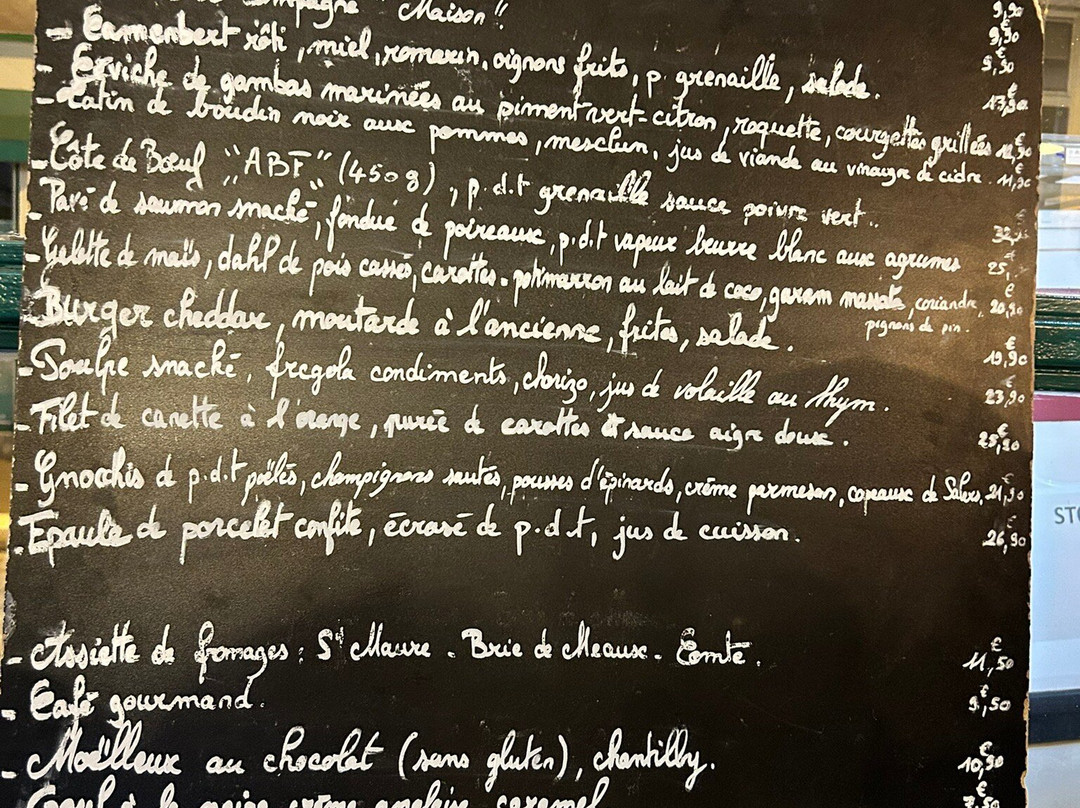 Campagne "Maison" 9,90
€
- Camembert rôti, miel, romarin, oignons frits, p. grenaille, salade. 9,90
- Ceviche de gambas marinées au piment vert-citron, roquette, courgettes grillées
€
13,90
- Tatin de boudin noir aux pommes, mesclun, jus de viande au vinaigre de cidre. 11,90
- Côte de Bœuf "ABF" (450g), p.d.t grenaille sauce poivre vert..
- Pavé de saumon snaché, fondue de poireaux, p.d.t vapeur beurre blanc aux agrumes 25,
- Galette de maïs, dahl de pois cassés, carottes-potimarron au lait de coco, garam massala, coriandre, 20,90
pignons de pin.
€
- Burger cheddar, moutarde à l'ancienne, frites, salade. 19,90
€
- Poulpe snaché, fregola condiments, chorizo, jus de volaille au thym. 23,90
€
- Filet de canette à l'orange, purée de carottes et sauce aigre douce. 25,90
€
- Gnochis de p.d.t poêlés, champignons sautés, pousses d'épinards, crème parmesan, copeaux de Salers, 21,90
€
- Epaule de porcelet confite, écrasé de p.d.t, jus de cuisson. 26,90
€
- Assiette de fromages : St Maure - Brie de Meaux - Comté. 11,50
€
- Café gourmand. 9,50
€
- Moëlleux au chocolat (sans gluten), chantilly. 10,90
€
crème anglaise, caramel 7,50
STO